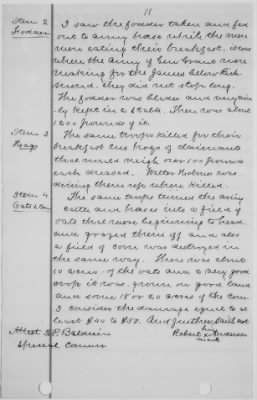 11
Item 2 I saw the fodder taken and fed
Fodder out to army horses while the men
were eating their breakfast. It was
when the army of Gen Grant were
making for the James below Rich-
mond. They did not stop long.
The fodder was blades and very nice
ly kept in a stack. There was about
1500 pounds of it.
Item 3 The same troops killed for their
Hogs breakfast two hogs of claimants
that would weigh over 100 pounds
each dressed. Walter Hobson was
driving them up when killed.
Item 4 The same troops turned the
Oats &c cattle and horses into a field of
oats that were beginning to head
and grazed them off and also
a field of corn was destroyed in
the same way. There was about
10 acres of the oats and a very good
crop it was, grown on good land
and some 18 or 20 acres of the corn
I consider the damage equal to at
least $40 to $50. And further saith not
Attest S. P. Baldwin his
Special Comm Robert x Anderson
mark